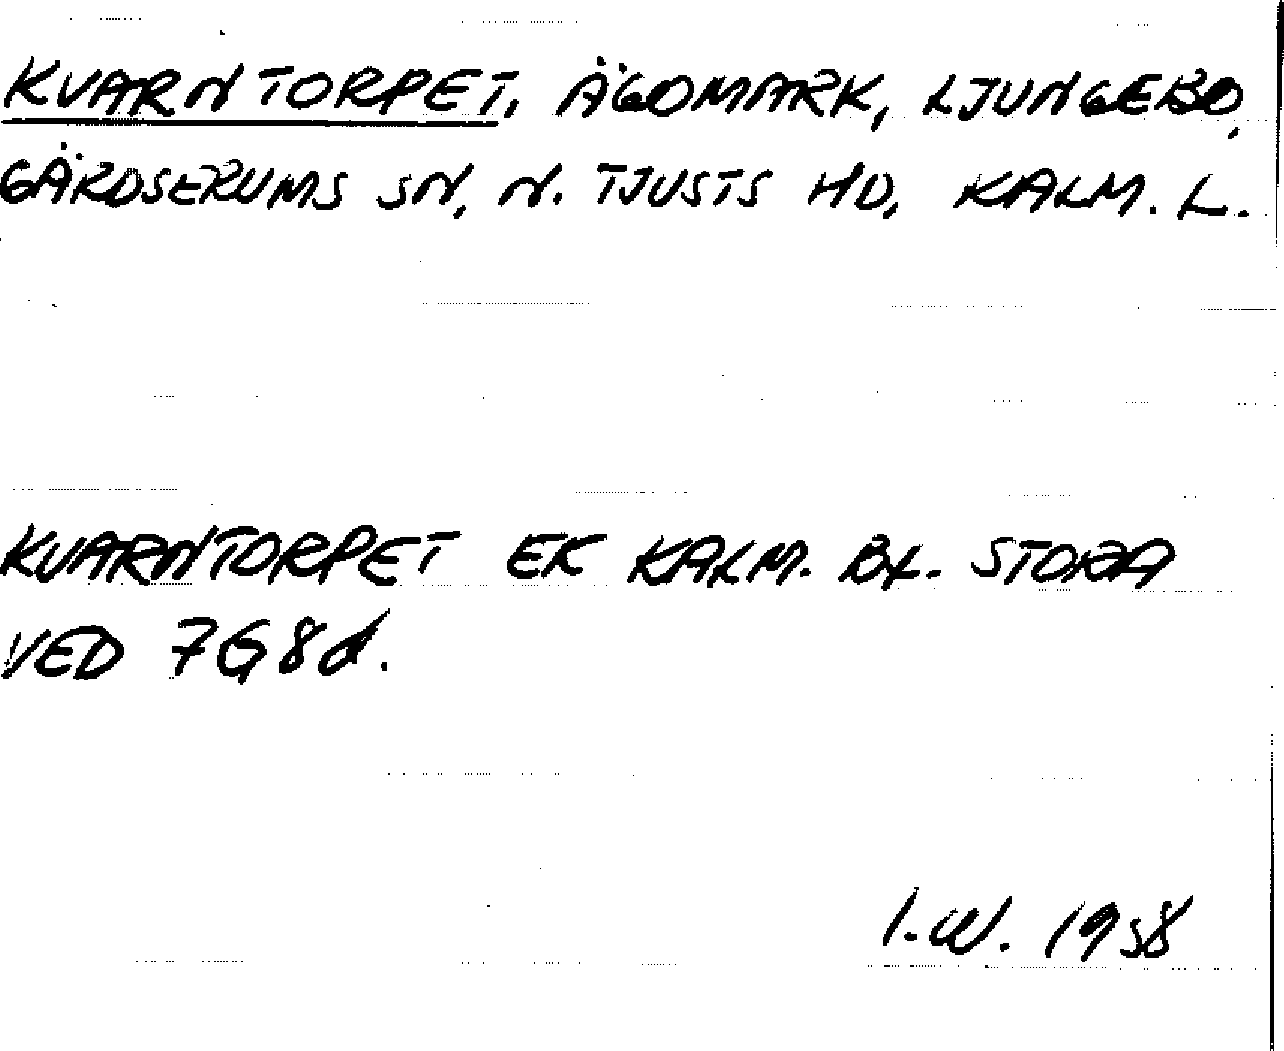 KVARNTORPET, ÄGOMARK, LJUNGEBO,
GÄRDSERUMS SN, N. TJUSTS HD, KALM. L.
KVARNTORPET EK KALM. BL. STORA
VED 7G8d.
I.W. 1958